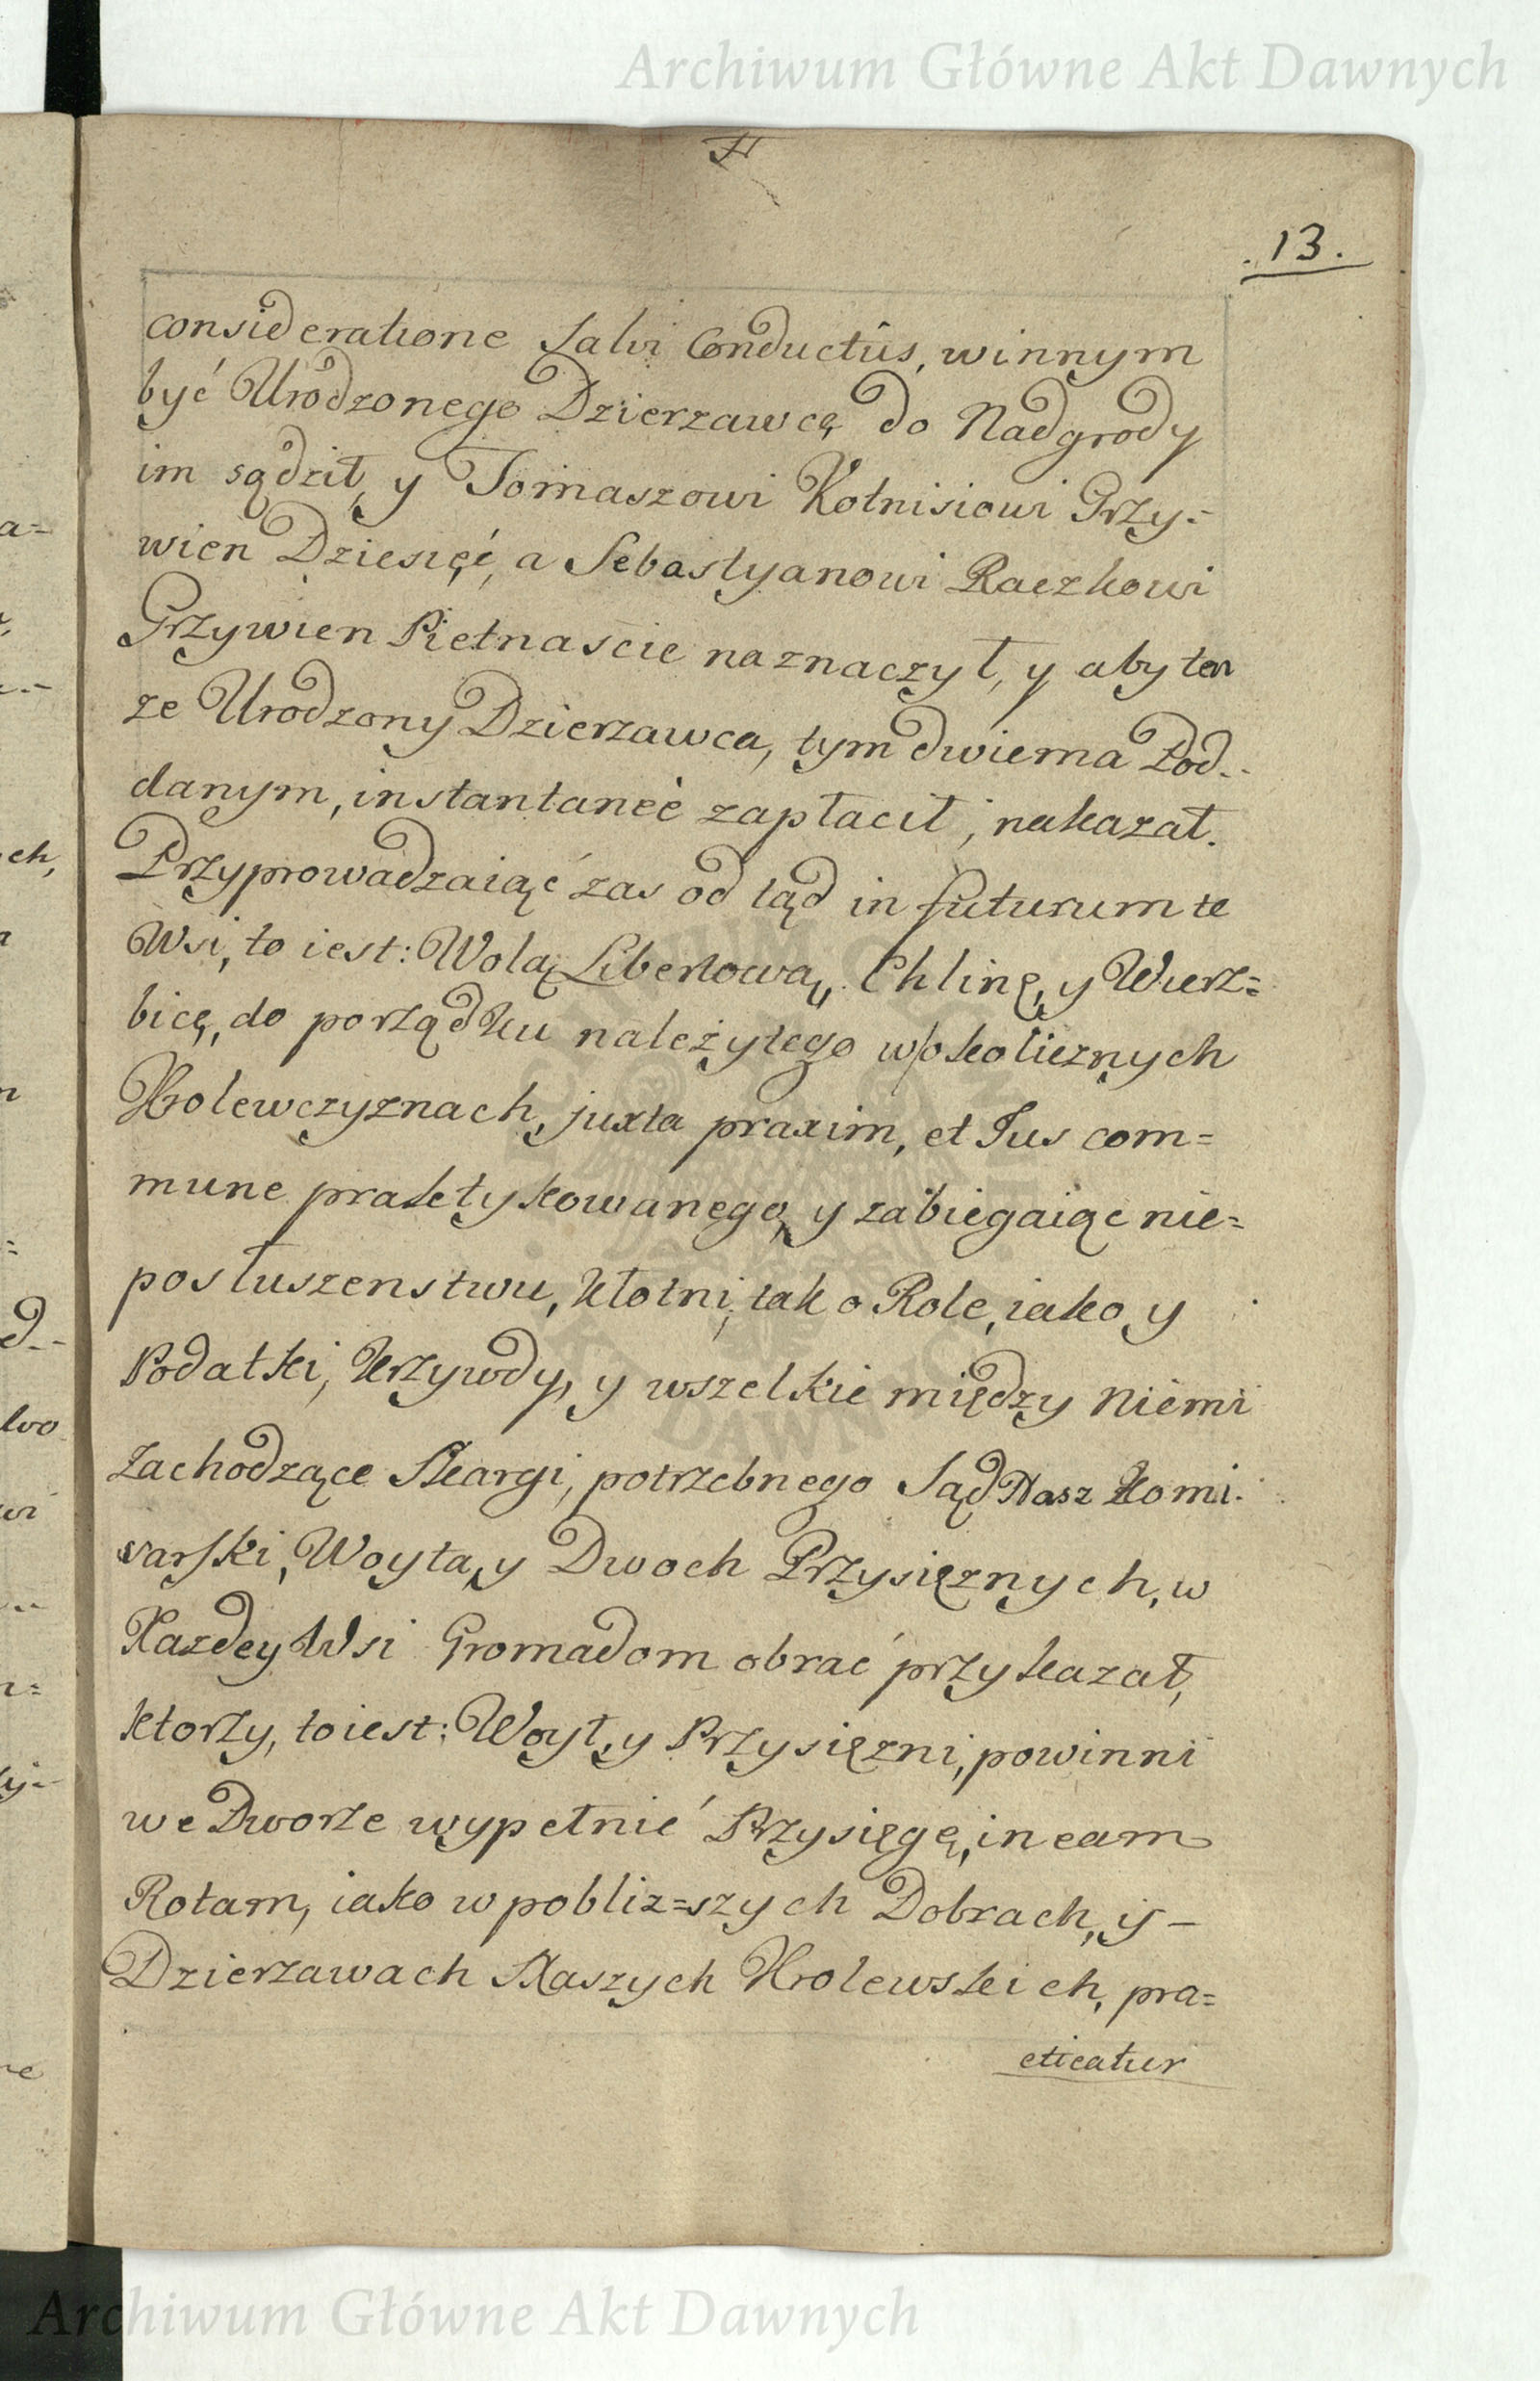 Archiwum Główne Akt Dawnych
13.
consideratione Salvi Conductûs, winnym
być Urodzonego Dzierzawcę do Nadgrody
im sądził, y Tomaszowi Kołnisiowi Grzy=
wien Dziesięć, a Sebastyanowi Raczkowi
Grzywien Piętnaście naznaczył, y aby ten
ze Urodzony Dzierzawca, tym dwiema Pod=
danym, instantaneè zapłacił, nakazał.
Przyprowadzaiąć zas od tąd in futurum te
Wsi, to iest: Wolą Libertową, Chlinę, y Wierz=
bicę, do porządku należytego w okolicznych
Krolewczyznach, juxta praxim, et Jus com=
mune praktykowanego, y zabiegaiąc nie=
posłuszenstwu, kłotni, tak o Role, iako y
Podatki, krzywdy, y wszelkie między niemi
zachodzące skargi, potrzebnego Sąd Nasz Komi=
sarski, Woyta, y Dwoch Przysięznych, w
Kazdey Wsi Gromadom obrać przykazał,
ktorzy, to iest: Woyt, y Przysięzni, powinni
we Dworze wypełnić Przysięgę, in eam
Rotam, iako w pobliz=szych Dobrach, y –
Dzierzawach Naszych Krolewskich, pra=
cticatur
Archiwum Główne Akt Dawnych